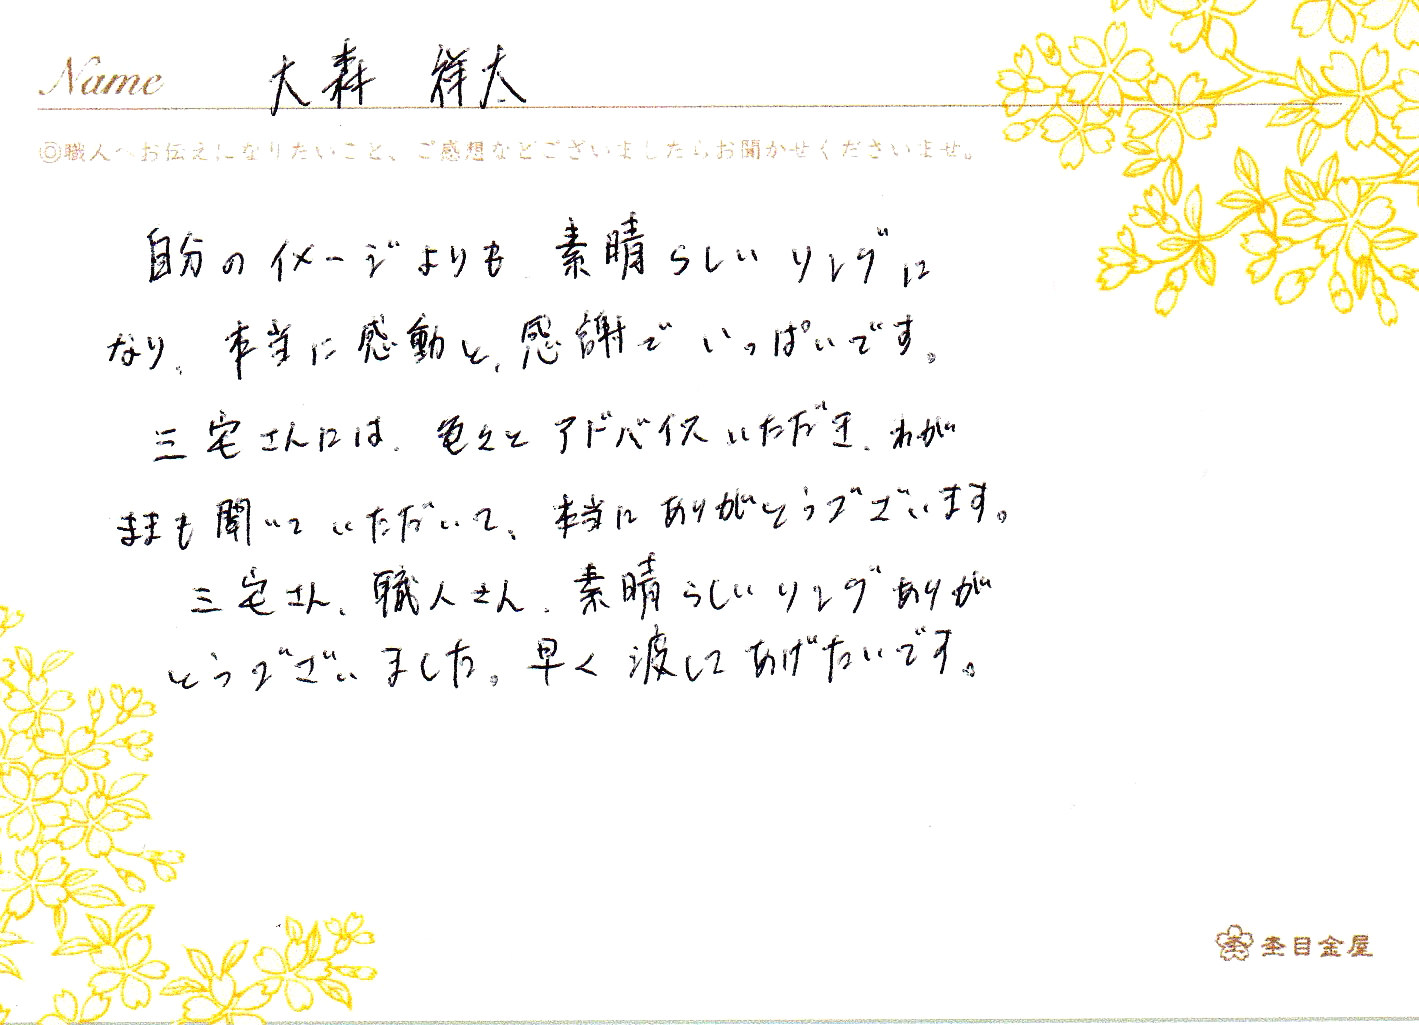 Name 大森 祥太
◎職人へお伝えになりたいこと、ご感想などございましたらお聞かせくださいませ。
自分のイメージよりも素晴らしいリングに
なり、本当に感動と、感謝でいっぱいです。
三宅さんには、色々とアドバイスいただき、わが
ままも聞いていただいて、本当にありがとうございます。
三宅さん、職人さん、素晴らしいリングありが
とうございました。早く渡してあげたいです。
杢目金屋